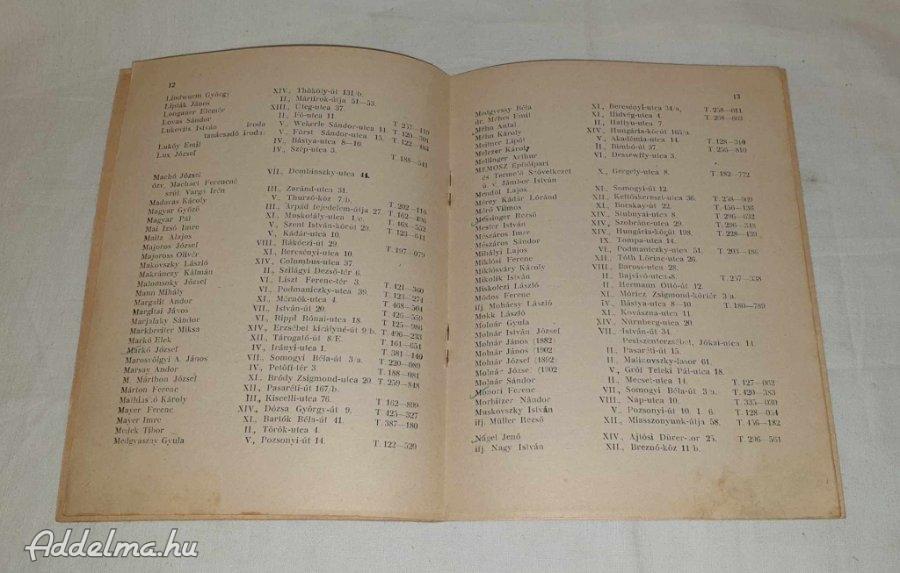 12
Lindwurm György XIV., Thököly-út 131/b.
Lipták János II., Mártírok-útja 51—53.
Longauer Elemér XIII., Üteg-utca 37.
Lovas Sándor II., Fő-utca 11
Lukovits István iroda V., Wekerle Sándor-utca 11.
tanácsadó iroda: V., Fürst Sándor-utca 15.
Lukóy Emil IV., Bástya-utca 8—10.
Lux József IV., Szép-utca 3. T. 188—541
Machó József VII., Dembinszky-utca 44.
özv. Machaci Ferencné
szül. Varga Irén III., Zoránd-utca 31.
Madavas Károly V., Thurzó-köz 7/b.
Magyar Győző III., Árpád fejedelem-útja 27
Magyar Pál XI., Muskotály-utca 1/c.
Mai Izsó Imre V., Szent István-körút 29.
Maitz Alajos V., Kádár-utca 10.
Majoros József VIII., Rákóczi-út 29.
Majoross Olivér XI., Bercsényi-utca 10. T. 197—079
Makovszky László XIV., Columbus-utca 37.
Makránczy Kálmán II., Szilágyi Dezső-tér 6.
Malomsoky József VI., Liszt Ferenc-tér 3.
Mann Mihály VI., Podmaniczky-utca 39. T. 421—360
Margalit Andor XI., Mérnök-utca 4. T. 121—274
Margitai János VII., István-út 20. T. 468—564
Marjalaky Sándor VI., Rippl Rónai-utca 18.
Markbreiter Miksa XIV., Erzsébet királyné-út 9/b.
Markó Elek XII., Tárogató-út 8/E.
Markó József IV., Irányi-utca 1. T. 161—654
Marosvölgyi A. János VII., Somogyi Béla-út 3/a.
Marsay Andor IV., Petőfi-tér 3.
M. Márthon József XI., Bródy Zsigmond-utca 20. T. 259—848
Márton Ferenc XII., Pasaréti-út 167/b.
Károly III., Kiscelli-utca 76.
Mayer Ferenc XIV., Dózsa György-út 9. T. 162—809
Mayer Imre XI., Bartók Béla-út 41. T. 425—327
Medek Tibor II., Török-utca 4. T. 387—180
Medgyaszay Gyula V., Pozsonyi-út 14. T. 122—529
13
Medgyessy Béla XI., Bercsényi-utca 34/a, T. 258—011
dr. Méhes Emil XI., Hídvég-utca 4. T. 268—603
Méhn Antal II., Hattyu-utca 7.
Méhn Károly XIV., Hungária-körút 165/a.
Meitner Lipót V., Akadémia-utca 14. T. 128—310
Melczer Károly II., Bimbó-út 37. T. 256—810
Mellinger Arthur Dessewffy-utca 3.
MEMOSZ Építőipari
és Termelő Szövetkezet
u. v. Jámbor István X., Gergely-utca 8. T. 182—772
Mendöl Lajos XI., Somogyi-út 12.
Mérey Kádár Lóránd XII., Költőkereszt-utca 36. T. 258—049
Méró Vilmos XI., Bocskay-út 22. T. 456—136
Messinger Rezső X., Stubnyai-utca 8. T. 296—632
Mester István XIV., Szobránc-utca 29. T. 296—432
Mészáros Imre XIV., Hungária-körút 198.
Mészáros Sándor IX., Tompa-utca 14.
Mihályi Lajos VI., Podmaniczky-utca 51.
Miklósi Ferenc XII., Tóth Lőrinc-utca 26.
Miklósváry Károly VIII., Baross-utca 28.
Mikolik István II., Bajvívó-utca 8. T. 257—338
Miskolczi László II., Hermann Ottó-út 12.
Módos Ferenc XI., Móricz Zsigmond-körtér 3/a.
ifj. Mohácsy László IV., Bástya-utca 8/10. T. 180—789
Mokk László XI., Kovászna-utca 11
Molnár Gyula XIV., Nürnberg-utca 20.
Molnár István József Pestszenterzsébet, Jókai-utca 14.
Molnár János (1882) II., Pasaréti-út 15.
Molnár János (1902 II., Malinovszky-fasor 61.
Molnár József (1882) V., Gróf Teleki Pál-utca 18.
Molnár József (1902 II., Mecset-utca 14. T. 127—062
Molnár Sándor VII., Somogyi Béla-út 3/a. T. 420—383
Monori Ferenc VIII., Nap-utca 10. T. 335—030
Morbitzer Nándor V., Pozsonyi-út 10. I. 6. T. 128—054
Muskovszky István XII., Miasszonyunk-útja 58. T. 456—182
ifj. Müller Rezső
Nágel Jenő XIV., Ajtósi Dürer-sor 25. T. 296—561
ifj. Nagy István XII., Breznó-köz 11/b.
Addelma.hu